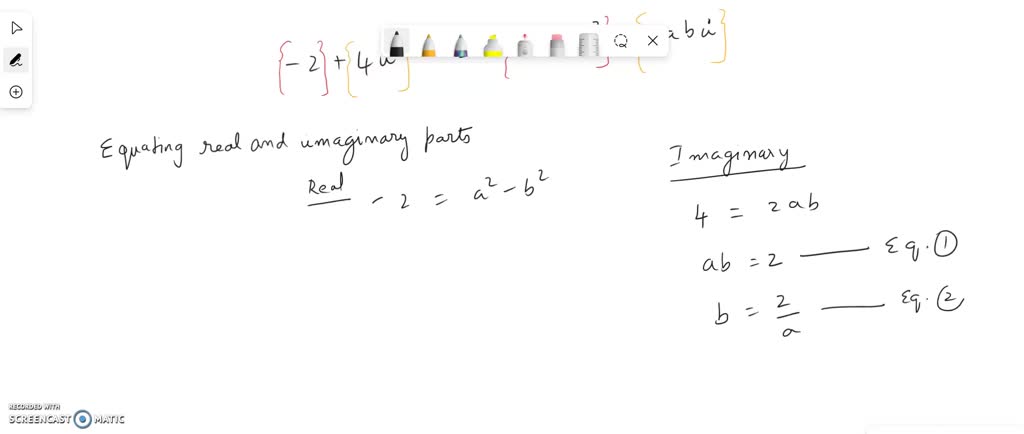 {-2}+{4i} {2} {abi}
Equating real and imaginary parts
Real -2 = a²-b²
Imaginary
4 = 2ab
ab = 2 —— Eq. ①
b = 2/a —— Eq. ②
RECORDED WITH
SCREENCAST MATIC